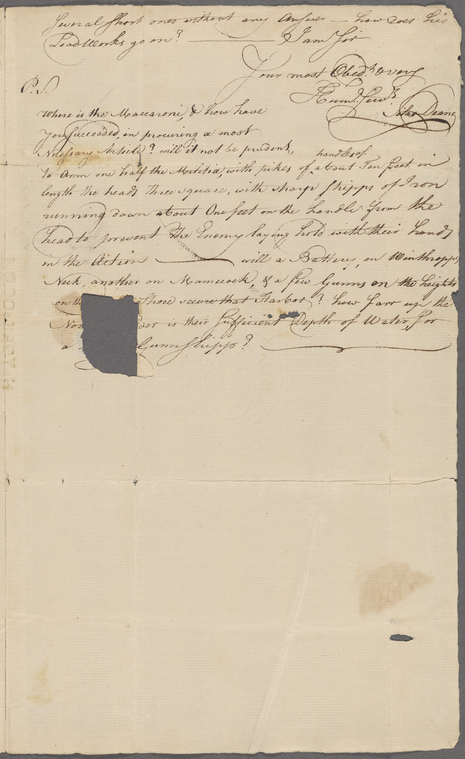 Several short ones without any Answer — how does his
Lead Works go on? — I am Sir
Your most Obedt. & very
Humb. Servt.
Silas Deane
P.S.
Where is the Maccaroni, & how have
You succeeded, in procuring a most
Necessary Article? will it not be prudent,
handles of
to Arm one half the Militia, with pikes of about Ten feet in
length the heads three square, with sharp shipps of Iron
running down about One feet on the handle from the
head to prevent the Enemy laying hold with their hands
in the Action — will a Battery, on Winthrops
Neck, another on Mamcock, & a few Gunns on the heights
on the shore secure that Harbor? how farr up the
is their sufficient Depth of Water, for
a Gunn Shipps?